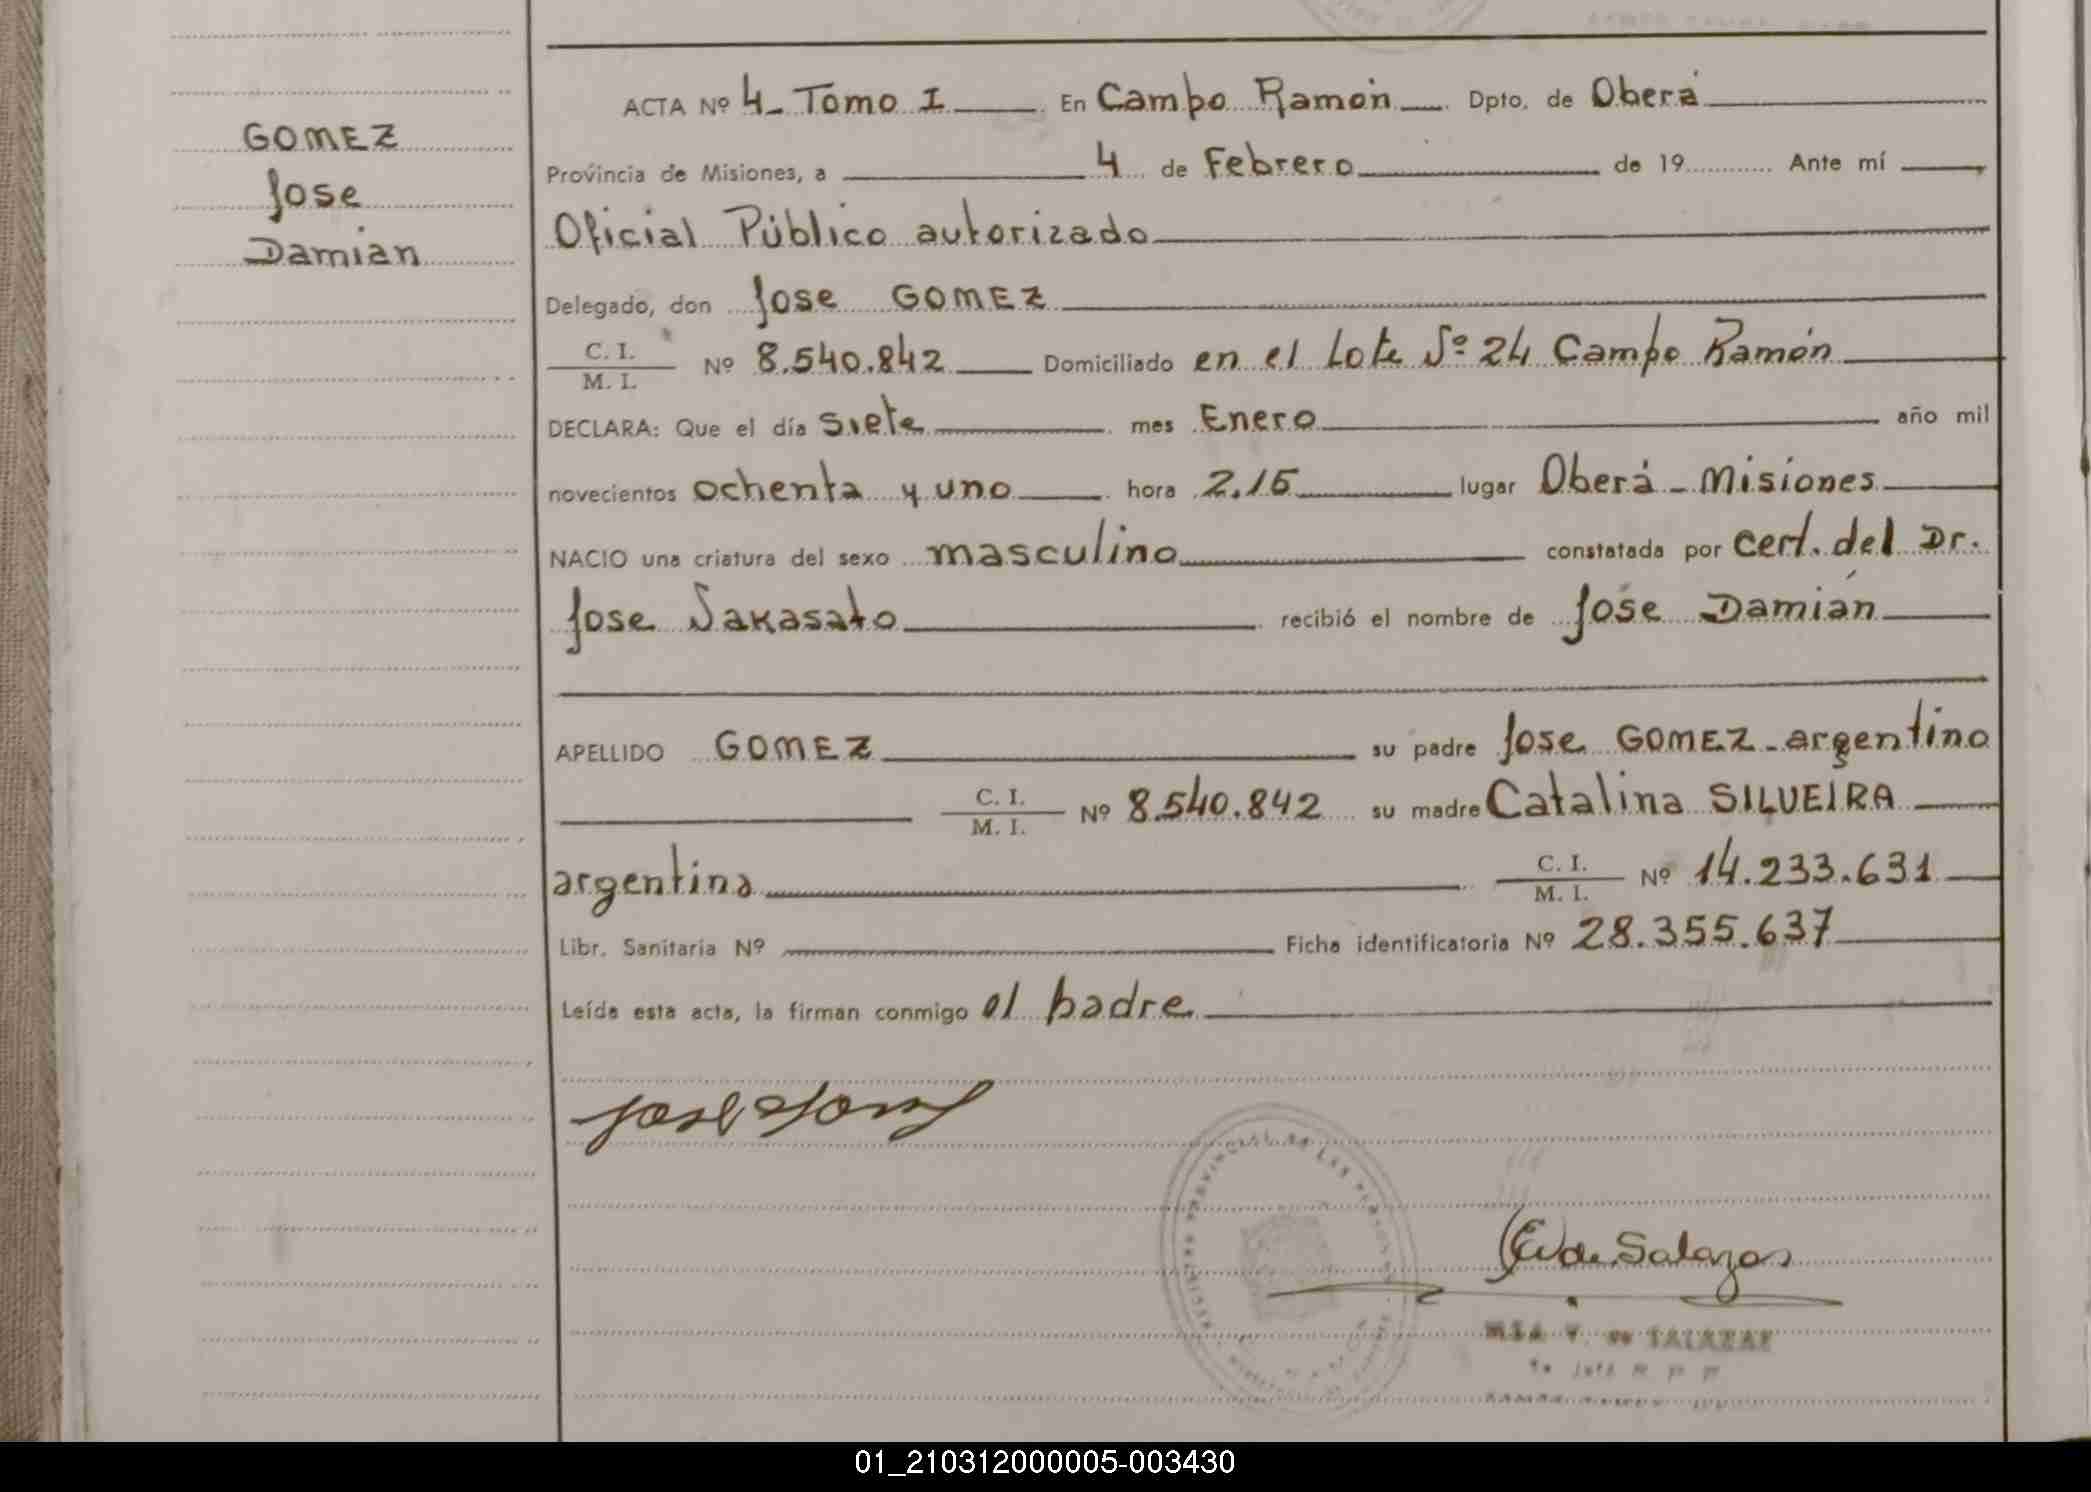 GOMEZ
Jose
Damian
ACTA Nº 4_ Tomo I En Campo Ramón Dpto. de Oberá
Provincia de Misiones, a 4 de Febrero de 19 Ante mí
Oficial Público autorizado
Delegado, don Jose GOMEZ
C. I.
M. I. Nº 8.540.842 Domiciliado en el Lote Nº 24 Campo Ramón
DECLARA: Que el día Siete mes Enero año mil
novecientos ochenta y uno hora 2.15 lugar Oberá - Misiones
NACIO una criatura del sexo masculino constatada por cert. del Dr.
Jose Nakasato recibió el nombre de José Damián
APELLIDO GOMEZ su padre Jose GOMEZ - argentino
C. I.
M. I. Nº 8.540.842 su madre Catalina SILVEIRA
argentina C. I.
M. I. Nº 14.233.631
Libr. Sanitaria Nº Ficha identificatoria Nº 28.355.637
Leída esta acta, la firman conmigo el padre
de Salazar
V. de SALAZAR
01_210312000005-003430